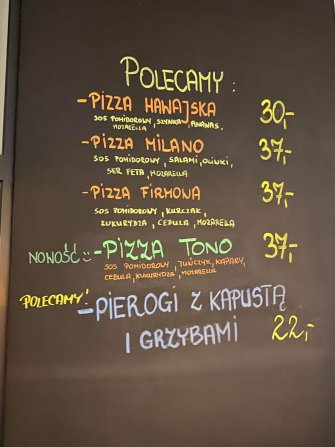 POLECAMY :
-PIZZA HAWAJSKA 30,-
SOS POMIDOROWY, SZYNKA, ANANAS,
MOZARELLA
-PIZZA MILANO 37,-
SOS POMIDOROWY, SALAMI, OLIWKI,
SER FETA, MOZARELLA
-PIZZA FIRMOWA 37,-
SOS POMIDOROWY, KURCZAK,
KUKURYDZA, CEBULA, MOZARELLA
NOWOŚĆ :: -PIZZA TONO 37,-
SOS POMIDOROWY, TUŃCZYK, KAPARY,
CEBULA, KUKURYDZA, MOZARELLA
POLECAMY!
-PIEROGI Z KAPUSTĄ
I GRZYBAMI 22,-